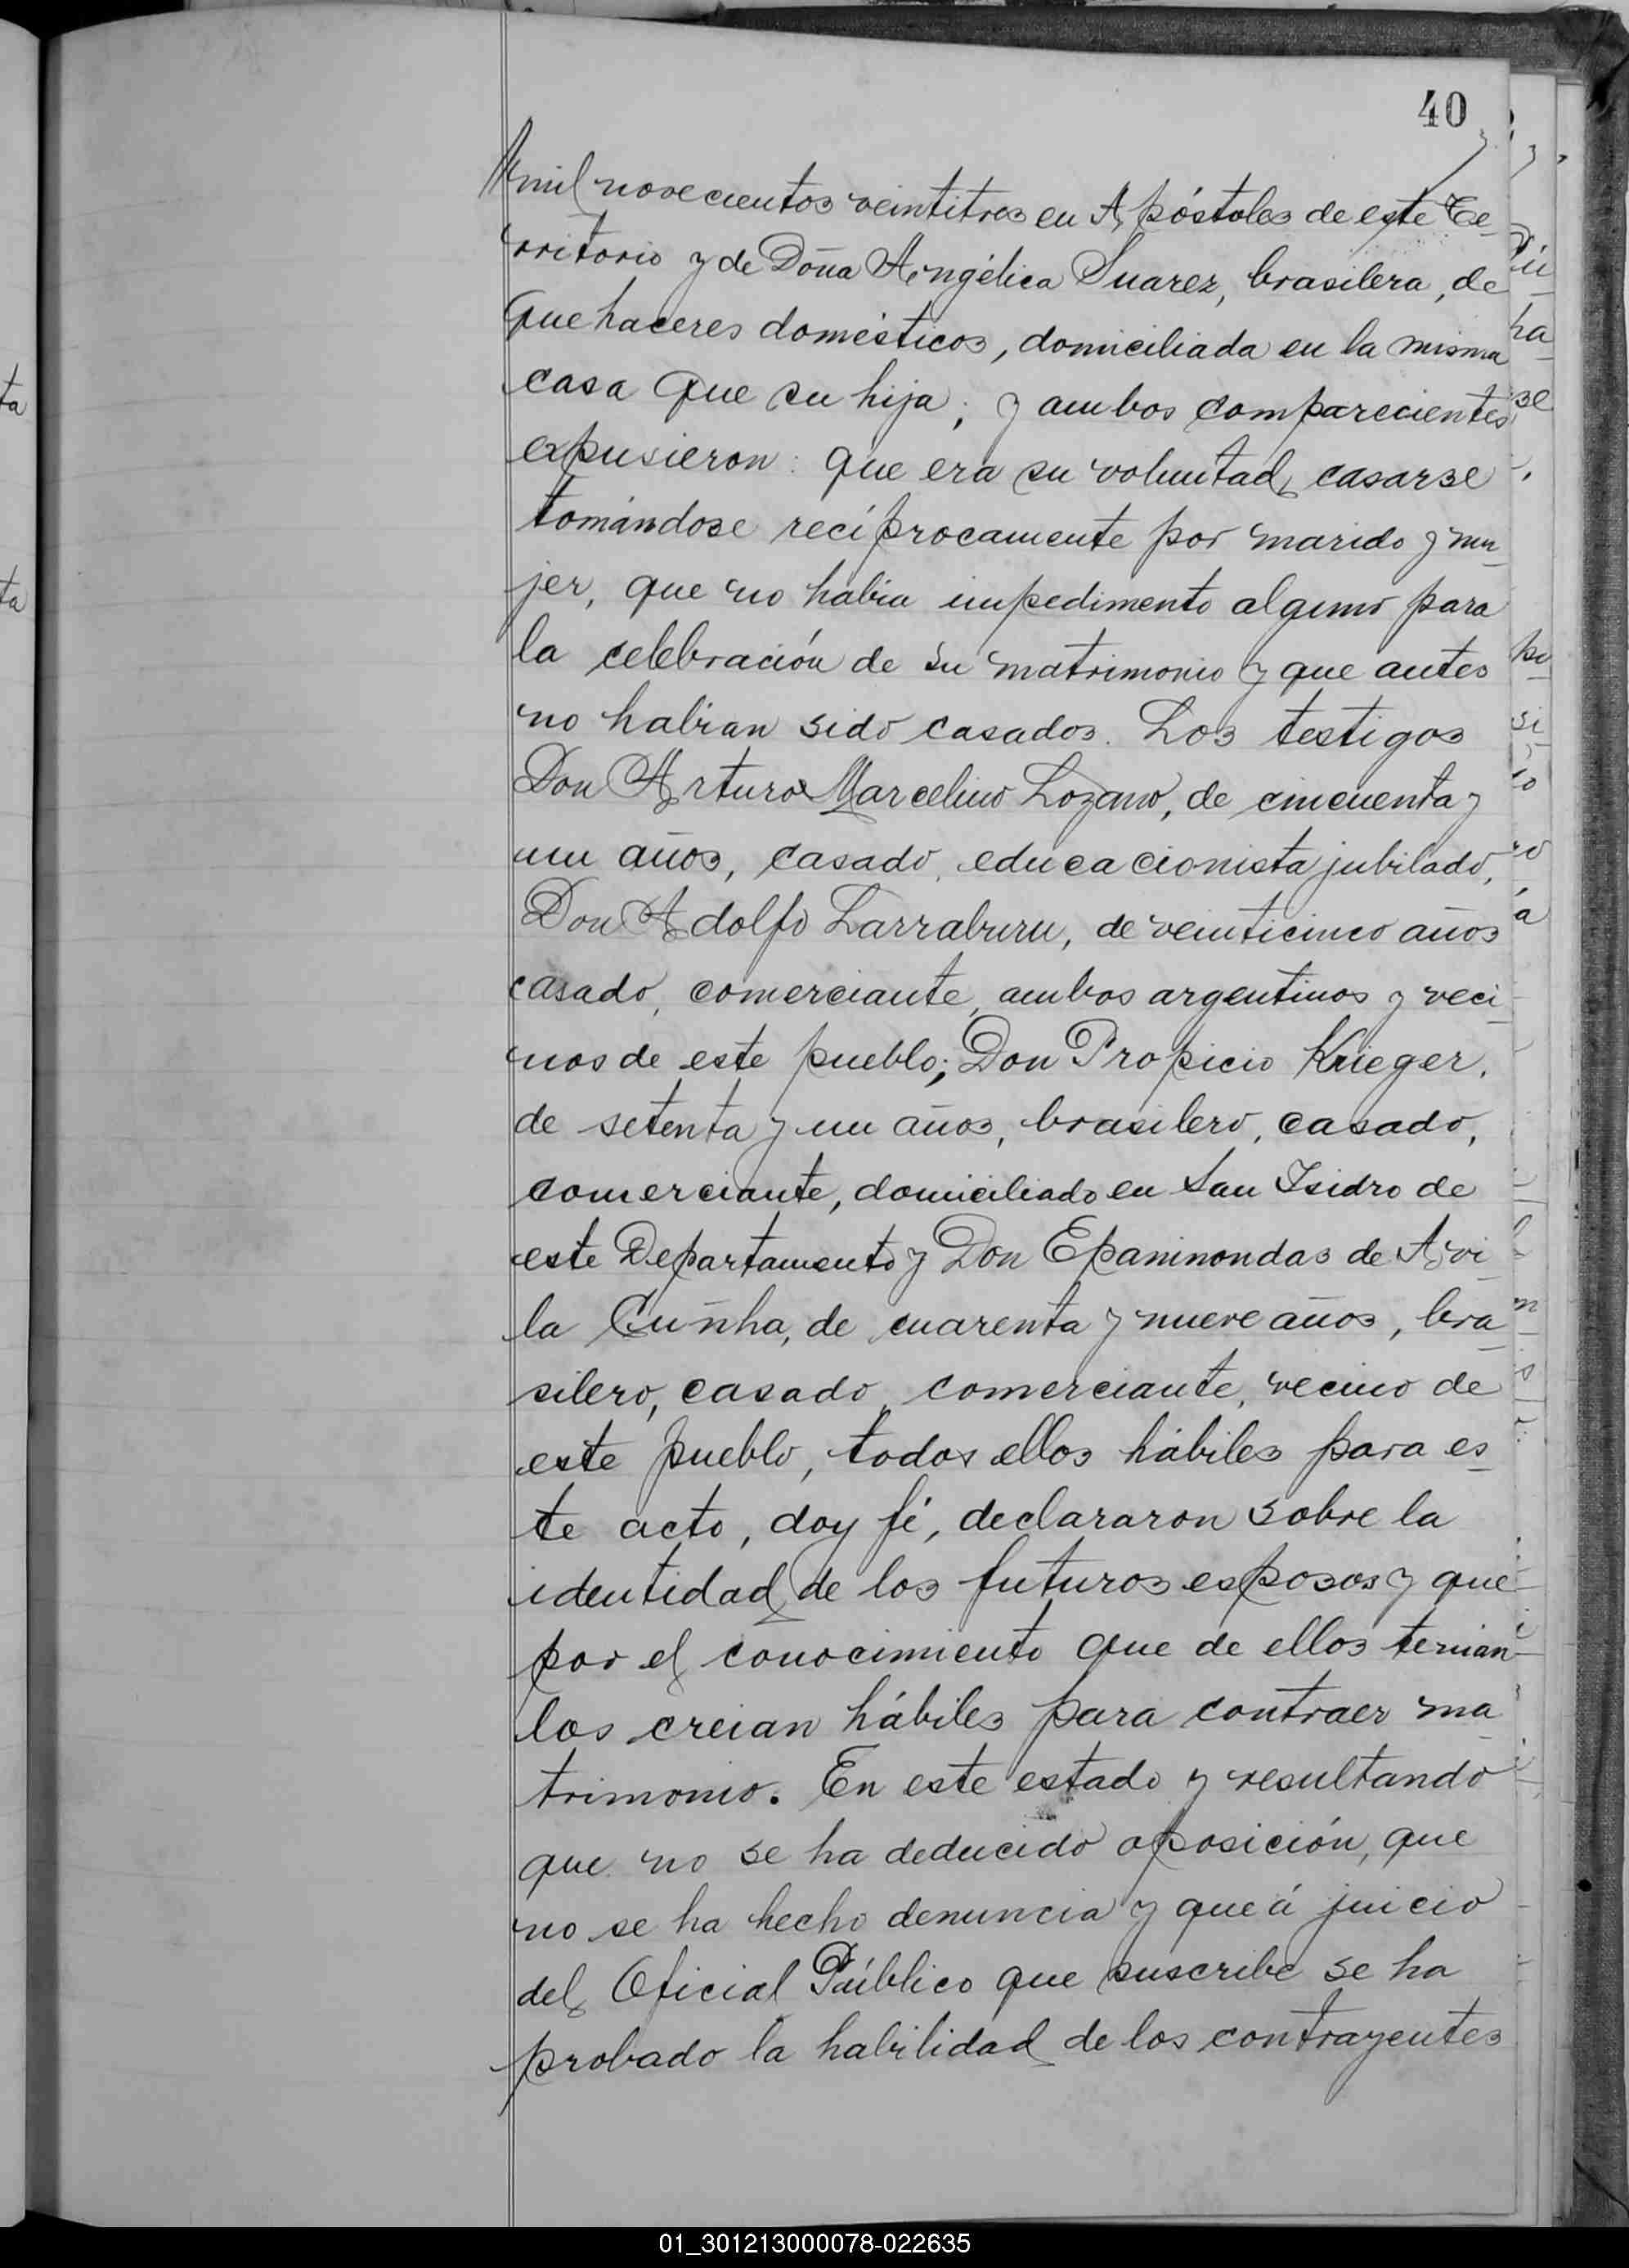 40
mil novecientos veintitres en Apóstoles de este Te-
rritorio y de Doña Angélica Suarez, brasilera, de
quehaceres domésticos, domiciliada en la misma
casa que su hija; y ambos comparecientes
expusieron: que era su voluntad casarse
tomándose recíprocamente por marido y mu-
jer, que no habia impedimento alguno para
la celebración de su matrimonio y que antes
no habian sido casados. Los testigos
Don Arturo Marcelino Lozano, de cincuenta y
un años, casado, educacionista jubilado,
Don Adolfo Larraburu, de veinticinco años
casado, comerciante, ambos argentinos y veci-
nos de este pueblo; Don Propicio Krieger,
de setenta y un años, brasilero, casado,
comerciante, domiciliado en San Isidro de
este Departamento y Don Epaminondas de Avi-
la Cuñha, de cuarenta y nueve años, bra-
silero, casado, comerciante, vecino de
este pueblo, todos ellos hábiles para es-
te acto, doy fé, declararon sobre la
identidad de los futuros esposos y que
por el conocimiento que de ellos tenian
los creian hábiles para contraer ma-
trimonio. En este estado y resultando
que no se ha deducido oposición, que
no se ha hecho denuncia y que á juicio
del Oficial Público que suscribe se ha
probado la habilidad de los contrayentes
01_301213000078-022635